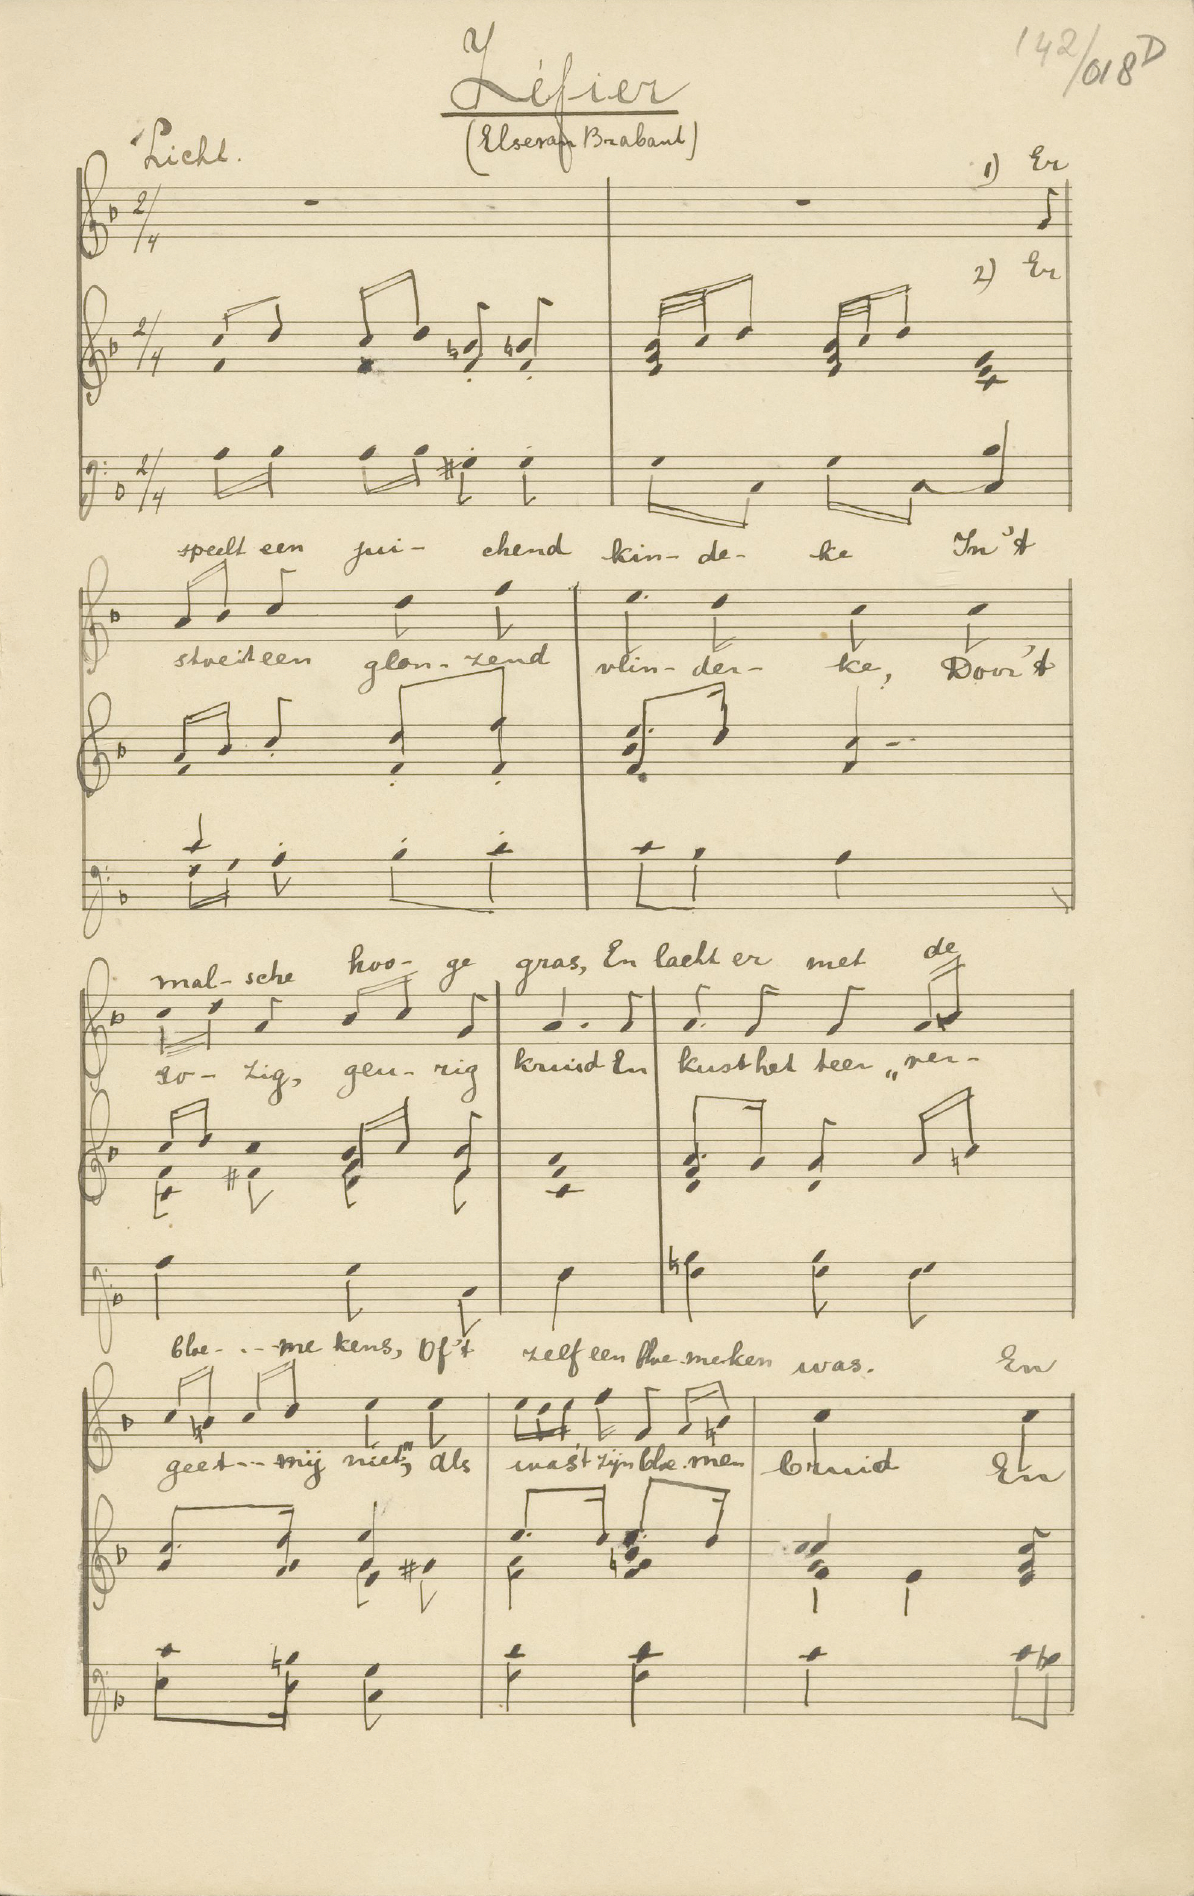 142/018D
Zéfier
(Else van Brabant)
Licht.
1) Er
2/4
2) Er
2/4
2/4
speelt een jui- chend kin- de- ke In 't
stoeit een glan- zend vlin- der- ke, Door 't
mal- sche hoo- ge gras, En lacht er met de
ro- zig, geu- rig kruid En kust het teer „ver-
bloe- - - me kens, Of 't zelf een bloe-meken was. En
geet - - mij niet", als was't zijn bloe-men bruid En